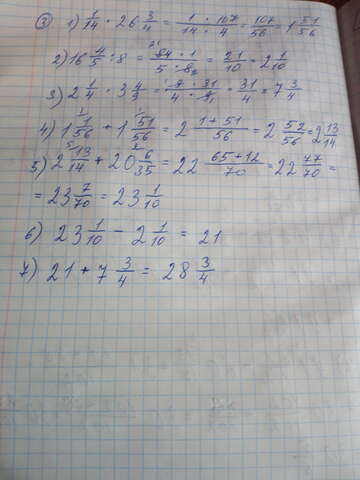 ③ 1) 1/14 · 26 3/4 = (1 · 107)/(14 · 4) = 107/56 = 1 51/56
2) 16 4/5 : 8 = (84 · 1)/(5 · 8) = 21/10 = 2 1/10
3) 2 1/4 · 3 4/9 = (9 · 31)/(4 · 9) = 31/4 = 7 3/4
4) 1 1/56 + 1 51/56 = 2 (1+51)/56 = 2 52/56 = 2 13/14
5) 2 13/14 + 20 6/35 = 22 (65+12)/70 = 22 77/70 =
= 23 7/70 = 23 1/10
6) 23 1/10 − 2 1/10 = 21
7) 21 + 7 3/4 = 28 3/4